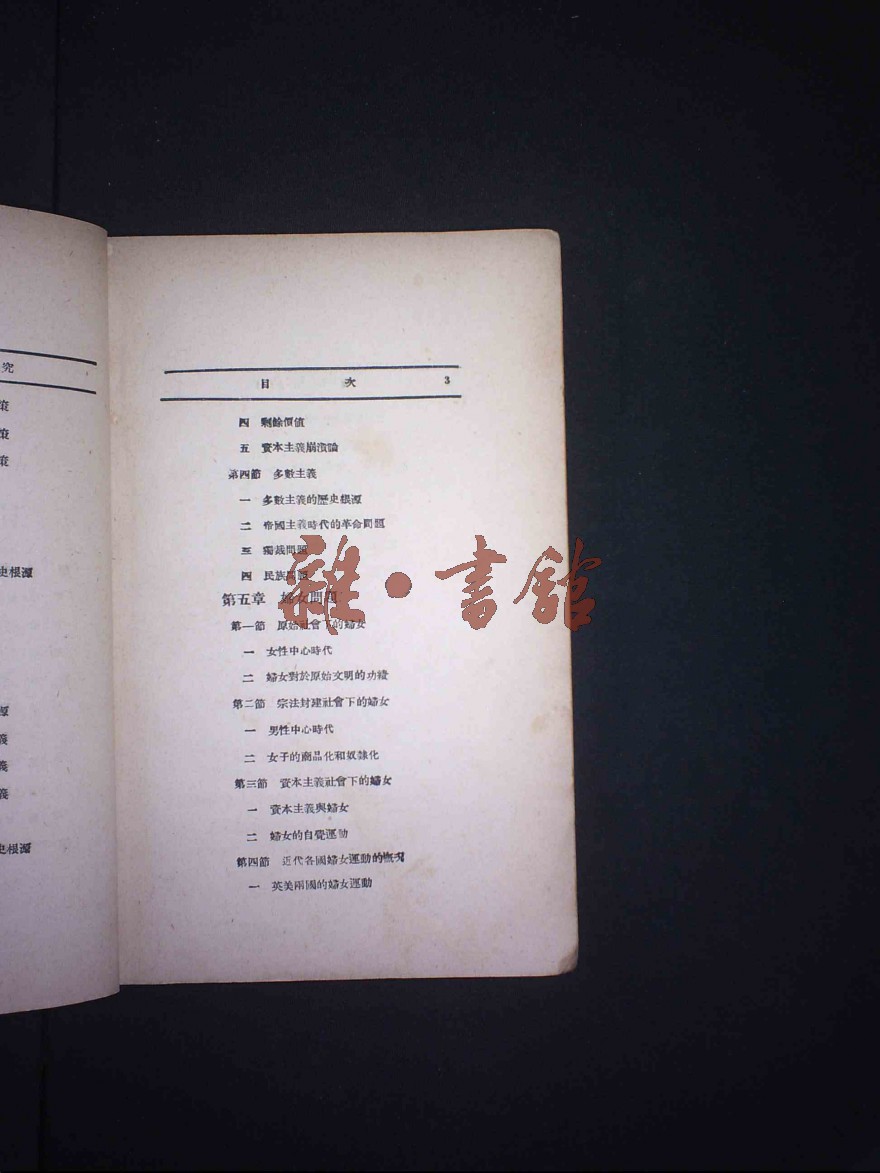 究
策
策
策
史根源
源
義
義
義
史根源
目次 3
四 剩餘價值
五 資本主義崩潰論
第四節 多數主義
一 多數主義的歷史根源
二 帝國主義時代的革命問題
三 獨裁問題
四 民族問題
第五章 婦女問題
第一節 原始社會下的婦女
一 女性中心時代
二 婦女對於原始文明的功績
第二節 宗法封建社會下的婦女
一 男性中心時代
二 女子的商品化和奴隸化
第三節 資本主義社會下的婦女
一 資本主義與婦女
二 婦女的自覺運動
第四節 近代各國婦女運動的概況
一 英美兩國的婦女運動
雜·書館